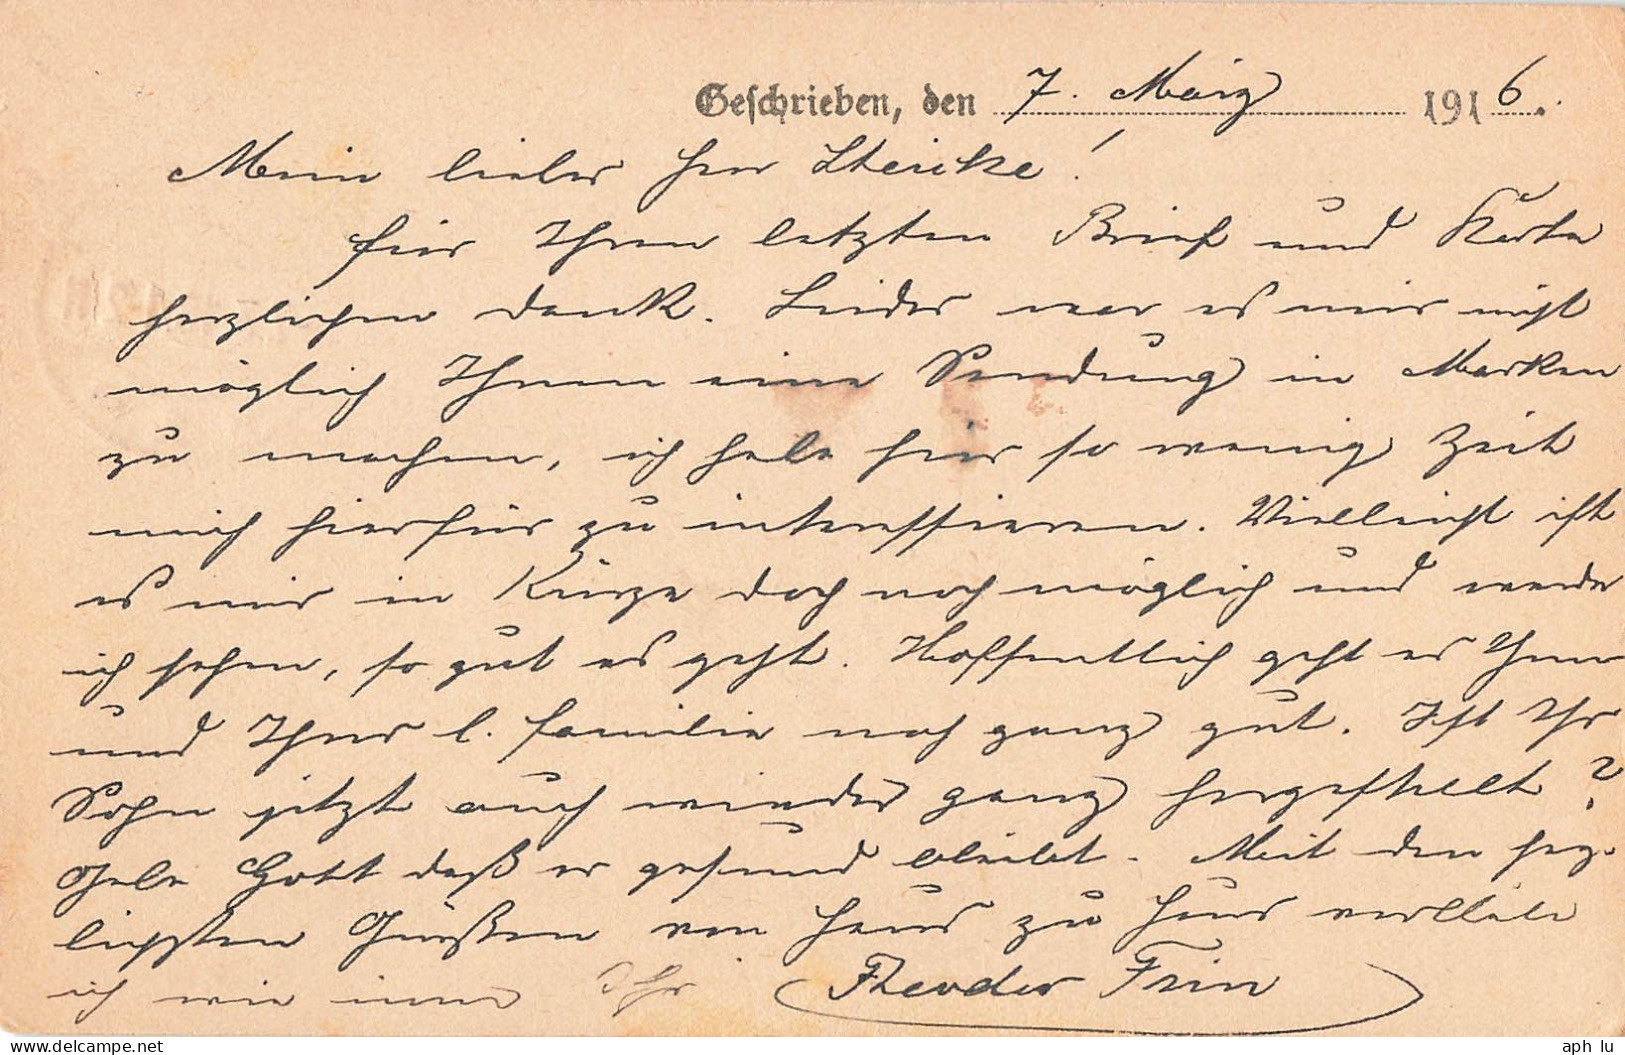 Geschrieben, den 7. März 1916.
Mein lieber Herr Steicke!
für Ihren letzten Brief und Karte
herzlichen Dank. Leider war es mir nicht
möglich Ihnen eine Sendung in Marken
zu machen, ich habe hier so wenig Zeit
mich hierfür zu interessieren. Vielleicht ist
es mir in Kürze doch noch möglich und werde
ich sehen, so gut es geht. Hoffentlich geht es Ihnen
und Ihrer l. Familie noch ganz gut. Ist Ihr
Sohn jetzt auch wieder ganz hergestellt?
Gebe Gott daß er gesund bleibt. Mit den herz-
lichsten Grüßen von Haus zu Haus verbleibe
ich wie immer Ihr Theodor
aph lu